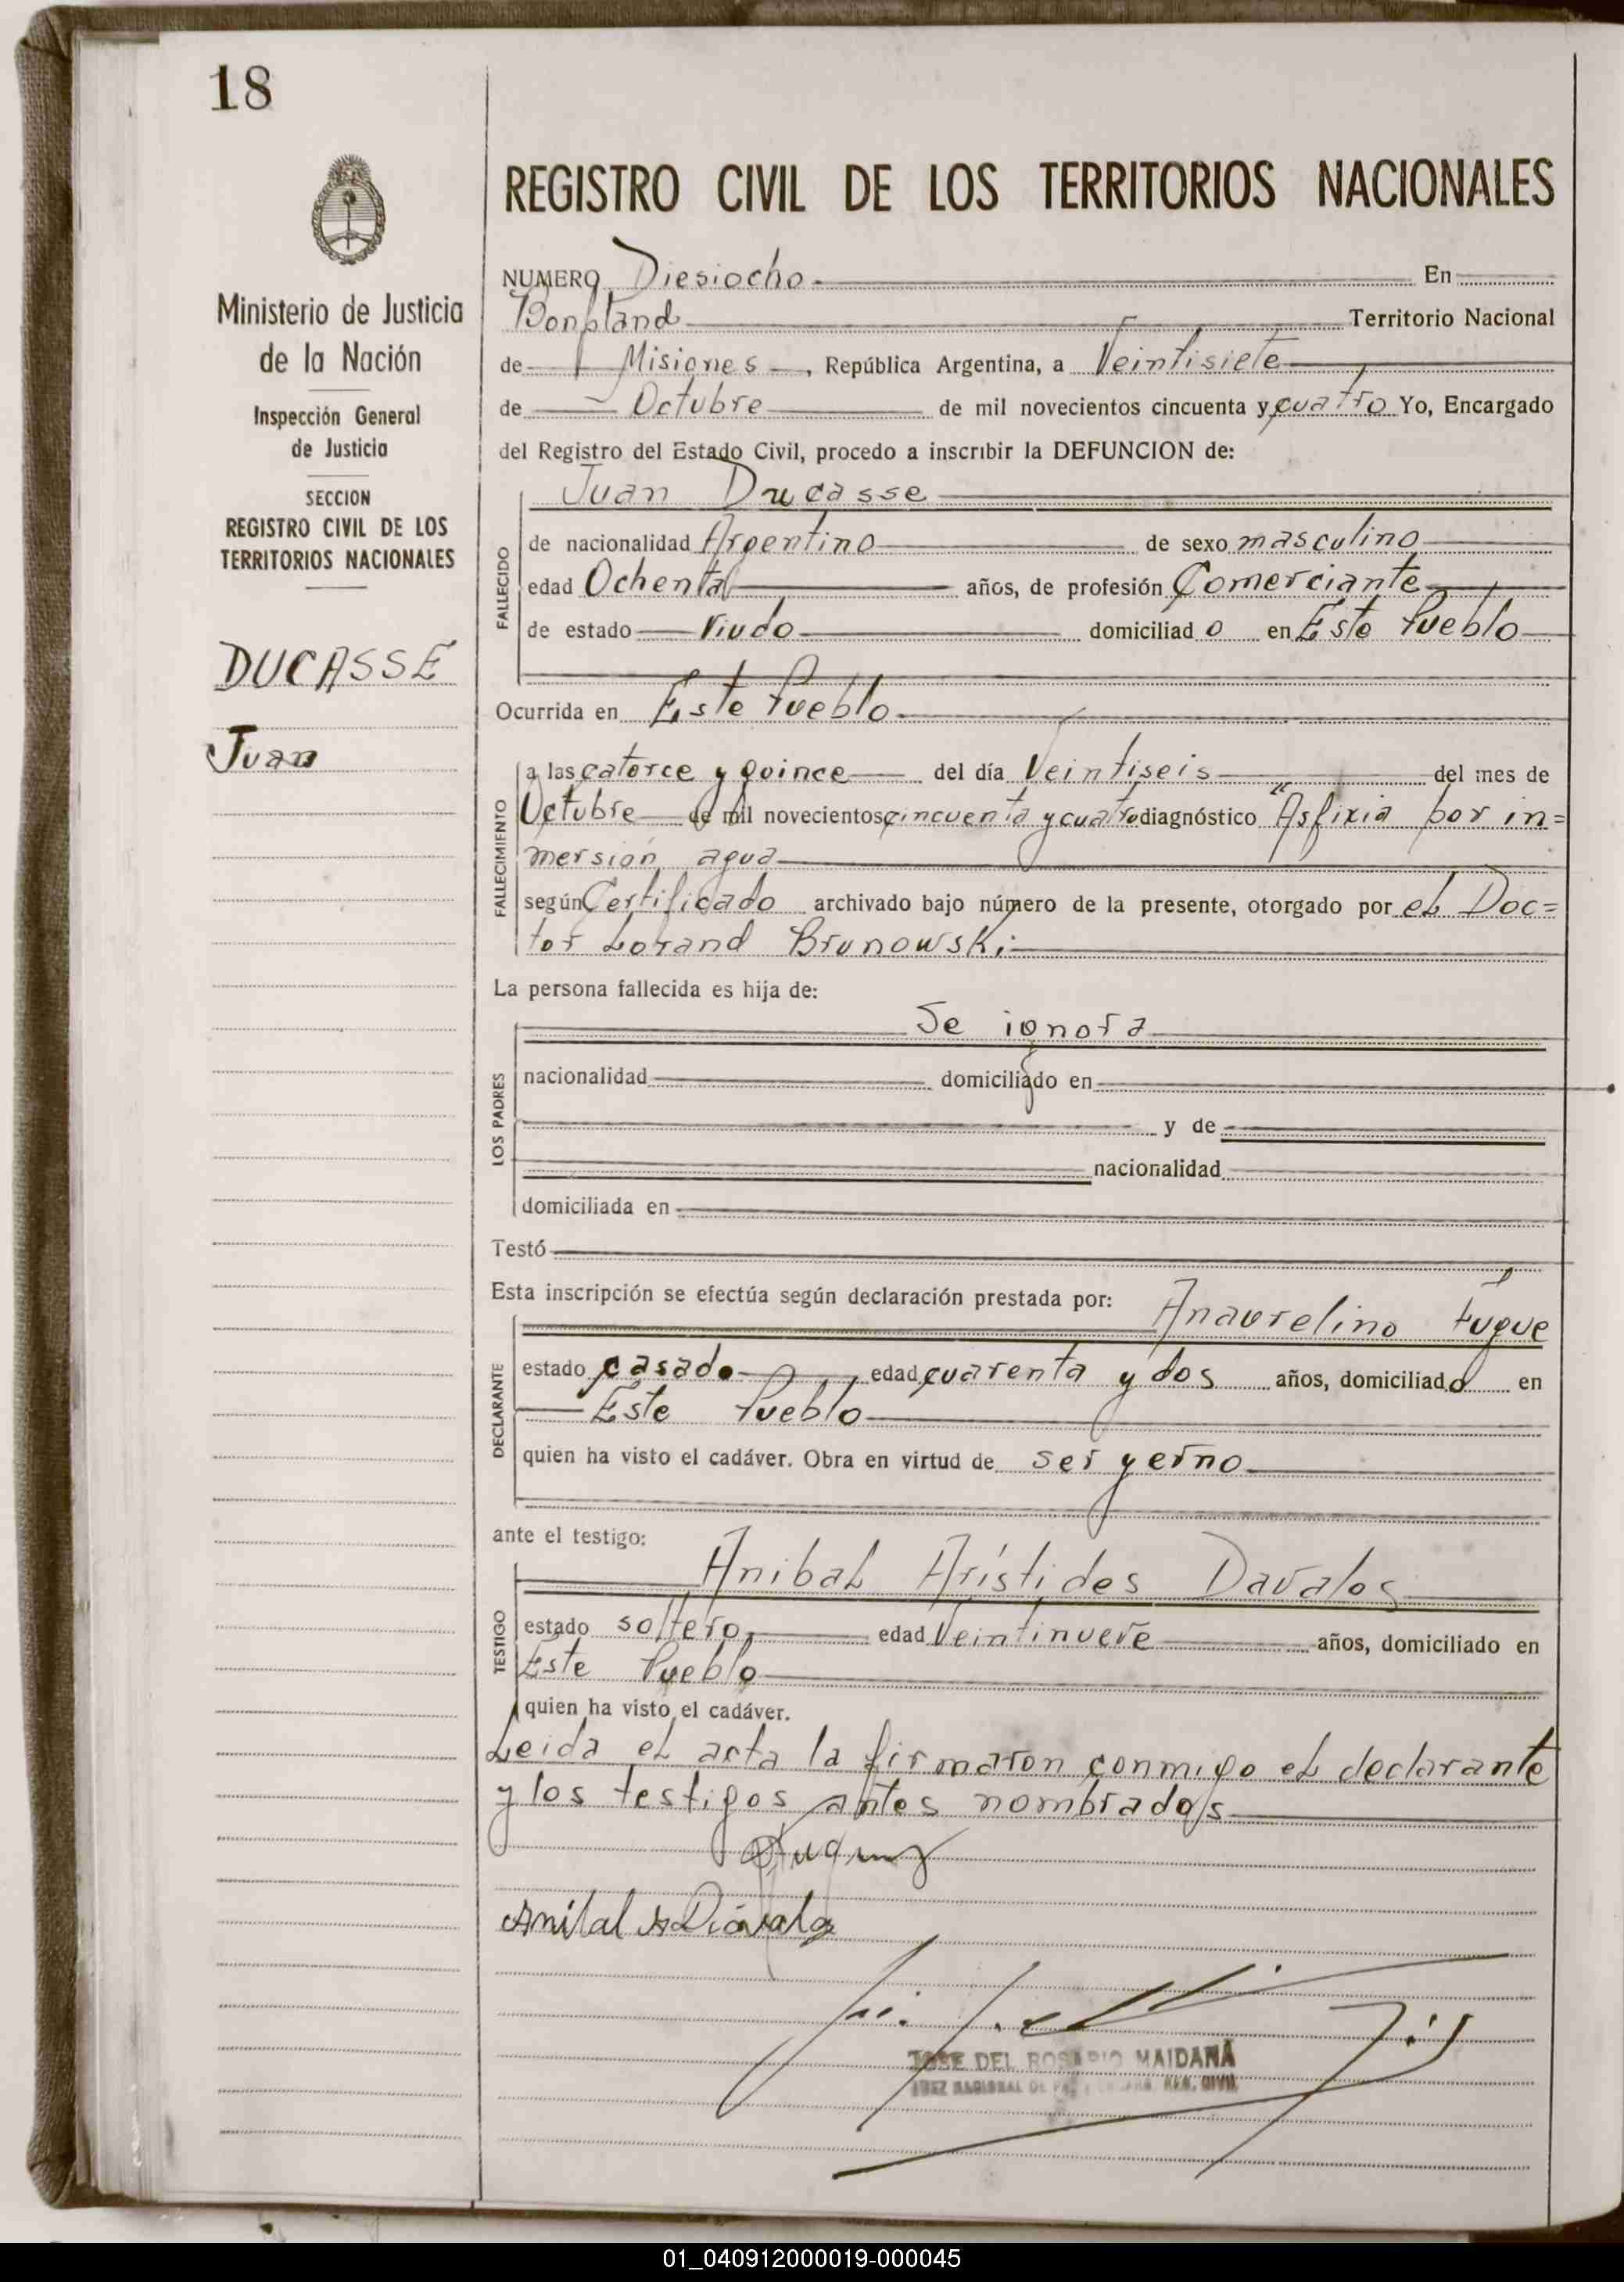 18
REGISTRO CIVIL DE LOS TERRITORIOS NACIONALES
Ministerio de Justicia
de la Nación
Inspección General
de Justicia
SECCION
REGISTRO CIVIL DE LOS
TERRITORIOS NACIONALES
DUCASSE
Juan
NUMERO Diesiocho En
Bonpland Territorio Nacional
de Misiones, República Argentina, a Veintisiete
de Octubre de mil novecientos cincuenta y cuatro Yo, Encargado
del Registro del Estado Civil, procedo a inscribir la DEFUNCION de:
FALLECIDO
Juan Ducasse
de nacionalidad Argentino de sexo masculino
edad Ochenta años, de profesión Comerciante
de estado Viudo domiciliado en Este Pueblo
Ocurrida en Este Pueblo
FALLECIMIENTO
a las catorce y quince del día Veintiseis del mes de
Octubre de mil novecientos cincuenta y cuatro diagnóstico "Asfixia por in=
mersion agua
según Certificado archivado bajo número de la presente, otorgado por el Doc=
tor Lorand Brunowski
La persona fallecida es hija de:
LOS PADRES
Se ignora
nacionalidad domiciliado en
y de
nacionalidad
domiciliada en
Testó
Esta inscripción se efectúa según declaración prestada por:
DECLARANTE
Anaurelino Fuque
estado casado edad cuarenta y dos años, domiciliado en
Este Pueblo
quien ha visto el cadáver. Obra en virtud de ser yerno
ante el testigo:
TESTIGO
Anibal Arístides Davalos
estado soltero edad Veintinueve años, domiciliado en
Este Pueblo
quien ha visto el cadáver.
Leida el acta la firmaron conmigo el declarante
y los testigos antes nombrados
Anibal A Dávalos
JOSE DEL ROSARIO MAIDANA
01_040912000019-000045